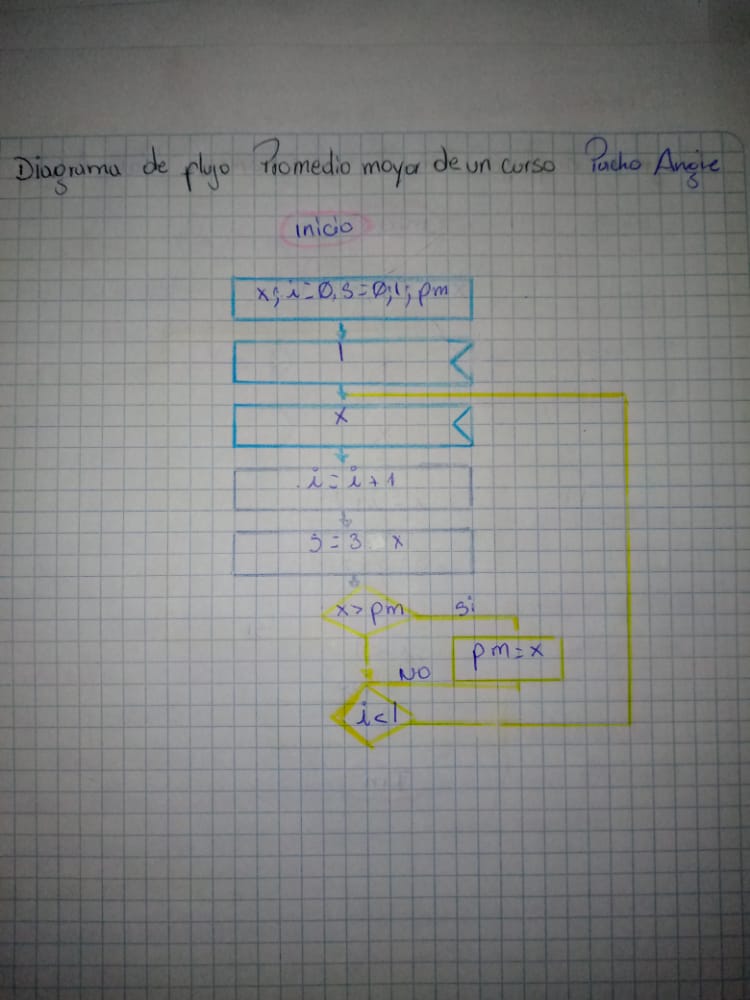 Diagrama de flujo Promedio mayor de un curso Pacho Angie
inicio
x; i=0, s=0; l; pm
l
x
i = i + 1
s = s x
x > pm
si
pm = x
NO
i < l